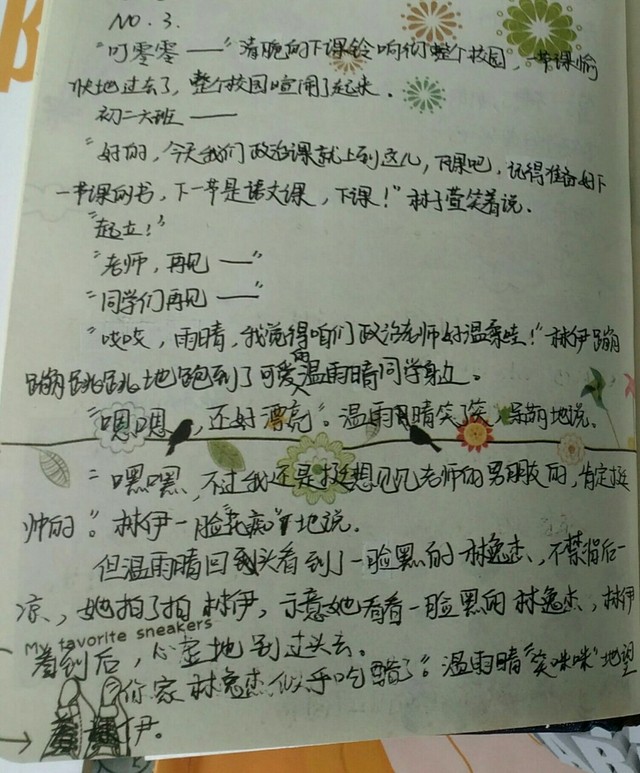 NO.3.
"叮零零——"清脆的下课铃响彻整个校园,一节课愉
快地过去了,整个校园喧闹了起来.
初二六班——
"好的,今天我们政治课就上到这儿,下课吧,记得准备好下
一节课的书,下一节是语文课,下课!"林子萱笑着说.
"起立!"
"老师,再见——"
"同学们再见——"
"哎哎,雨晴,我觉得咱们政治老师好温柔哇!"林伊蹦
蹦跳跳地跑到了可爱的温雨晴同学身边。
"嗯嗯,还好漂亮"。温雨晴笑地说。
"嘿嘿,不过我还是挺想见见老师的男朋友的,肯定挺
帅的"。林伊一脸花痴地说.
但温雨晴回头看到了一脸黑的林逸杰,不禁背后一
凉,她拍了拍林伊,示意她看看一脸黑的林逸杰,林伊
My favorite sneakers
看到后,心虚地别过头去。
你家林逸杰似乎吃醋了"。温雨晴"笑咪咪"地望
着林伊。